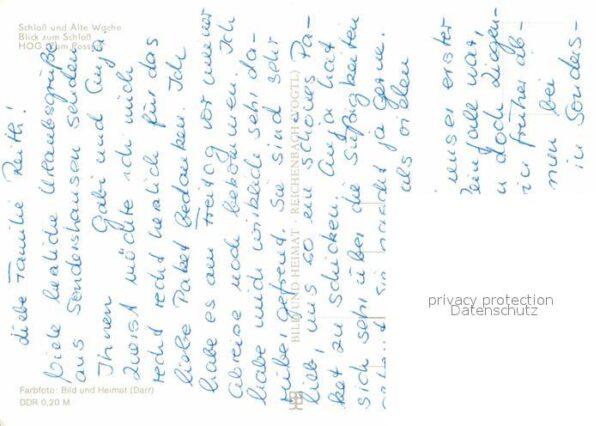 Schloß und Alte Wache
Blick zum Schloß
HOG "Zum Possen"
Liebe Familie Reith!
Viele herzliche Urlaubsgrüße
aus Sondershausen senden
Ihnen Gabi und Anja.
Zuerst möchte ich mich
recht recht herzlich für das
liebe Paket bedanken. Ich
habe es am Freitag vor unserer
Abreise noch bekommen. Ich
habe mich wirklich sehr da-
rüber gefreut. Sie sind sehr
lieb, uns so ein schönes Pa-
ket zu schicken. Anja hat
sich sehr über die Süßigkeiten
ja gerne.
als vielen
unser erster
Einfall war,
doch
in früher ab-
nen bei
in Sonders-
BILD UND HEIMAT REICHENBACH (VOGTL)
Farbfoto: Bild und Heimat (Darr)
DDR 0,20 M
privacy protection
Datenschutz